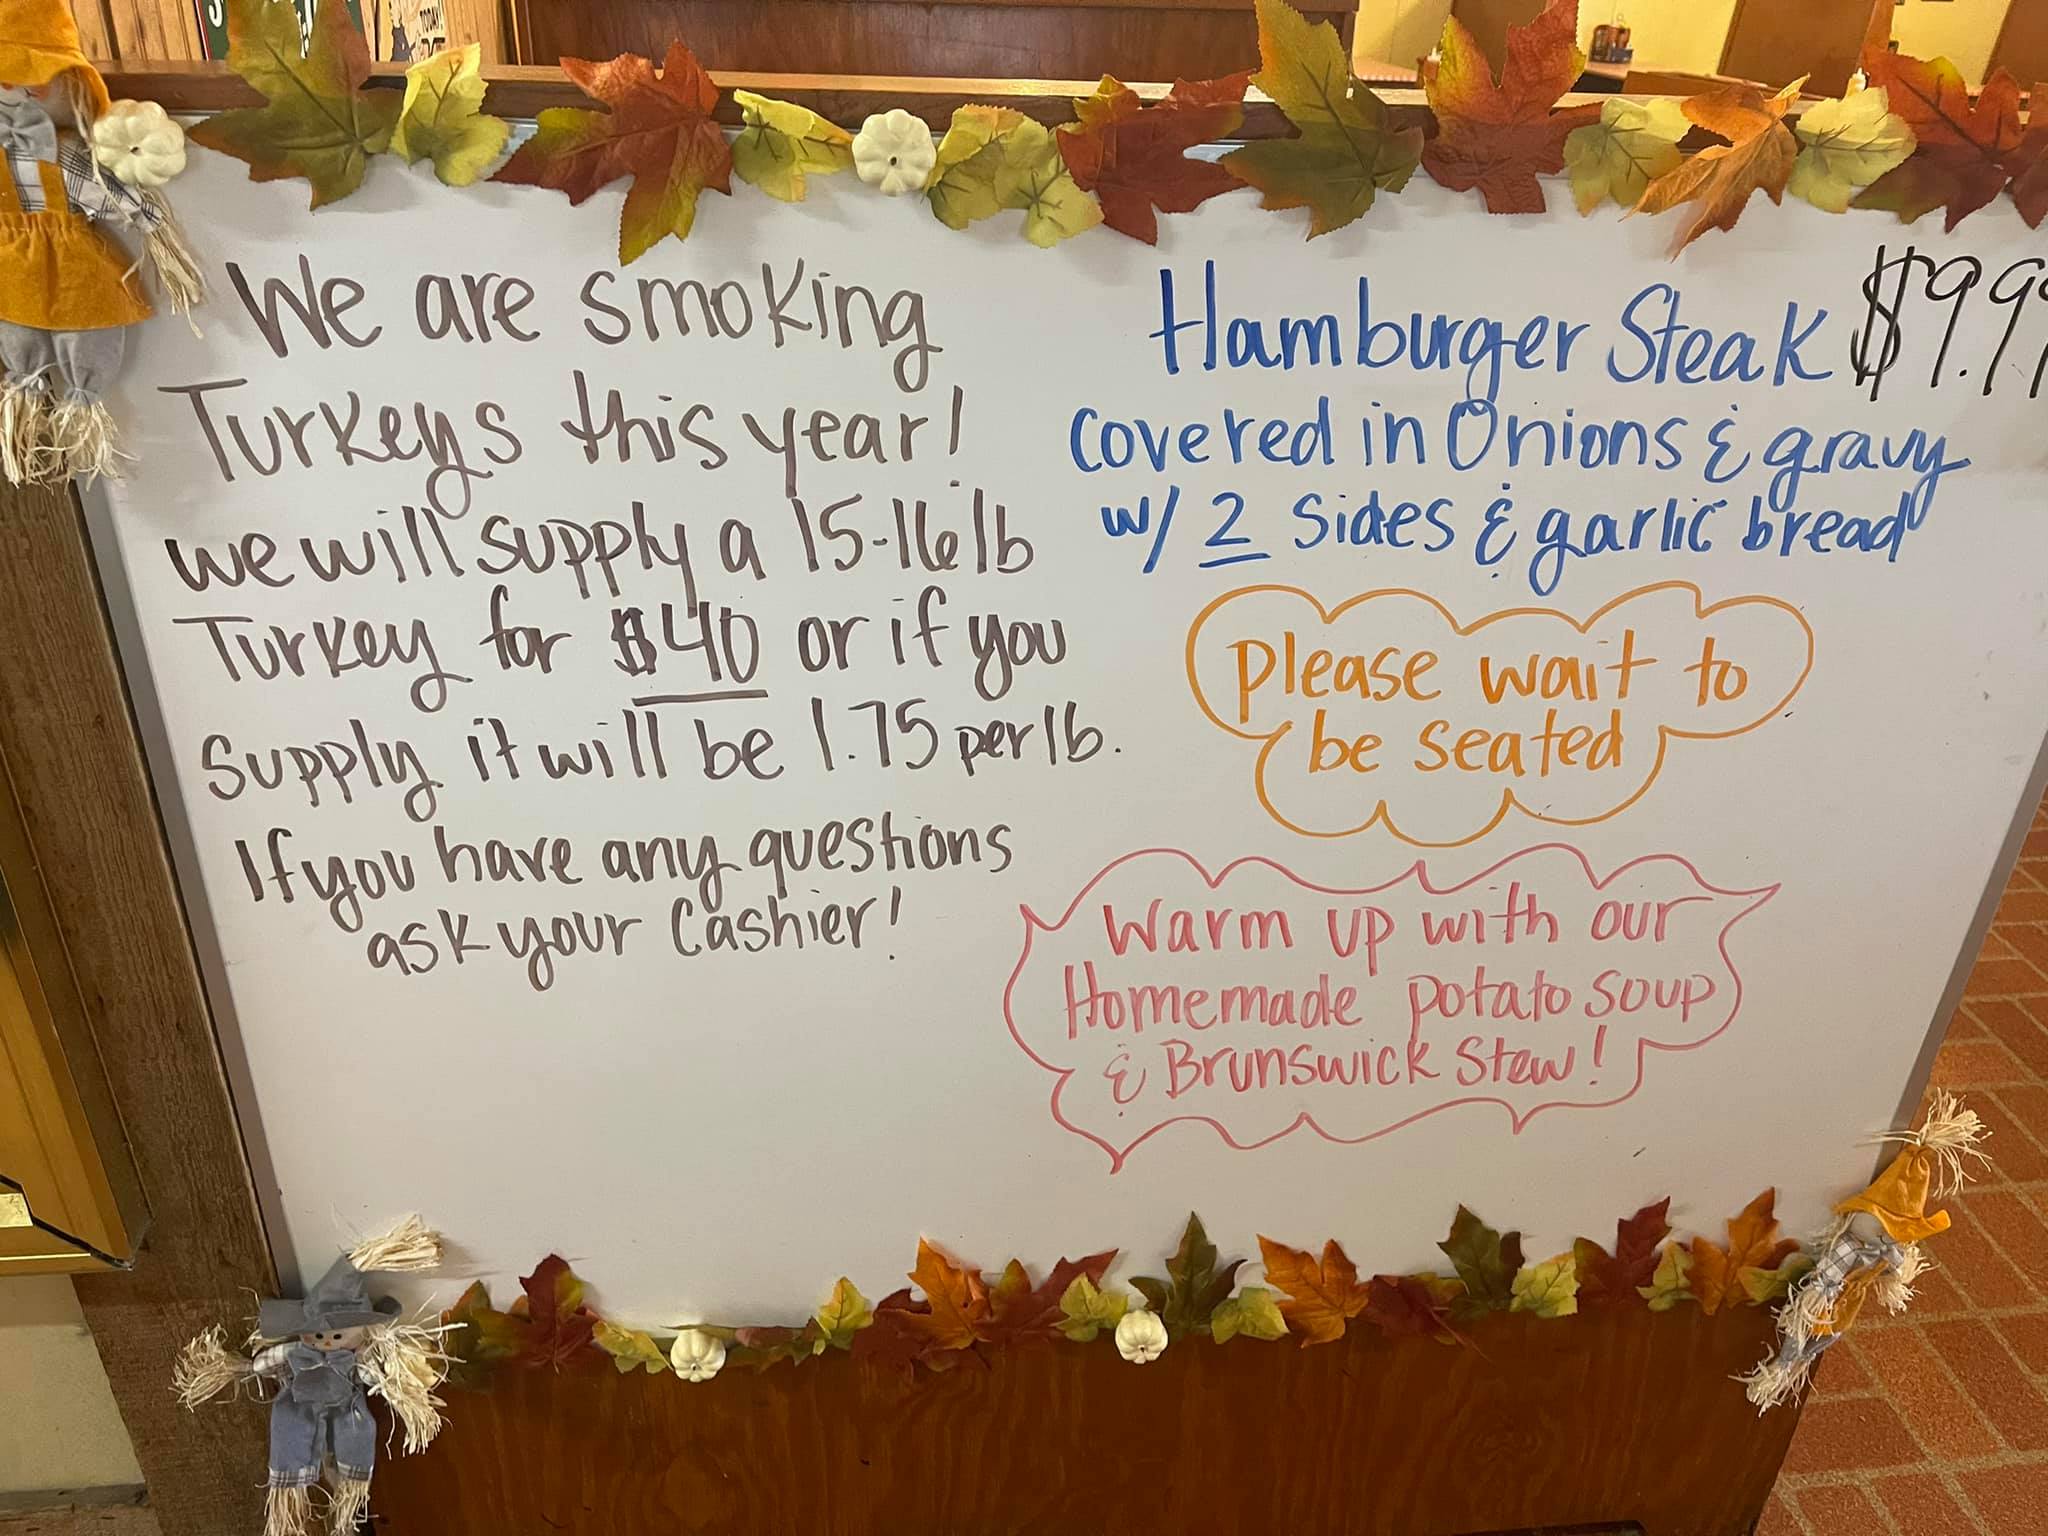 TODAY!
We are smoking
Turkeys this year!
we will supply a 15-16 lb
Turkey for $40 or if you
supply it will be 1.75 per lb.
If you have any questions
ask your cashier!
Hamburger Steak $9.99
covered in Onions & gravy
w/ 2 sides & garlic bread
please wait to
be seated
Warm up with our
Homemade potato soup
& Brunswick Stew!